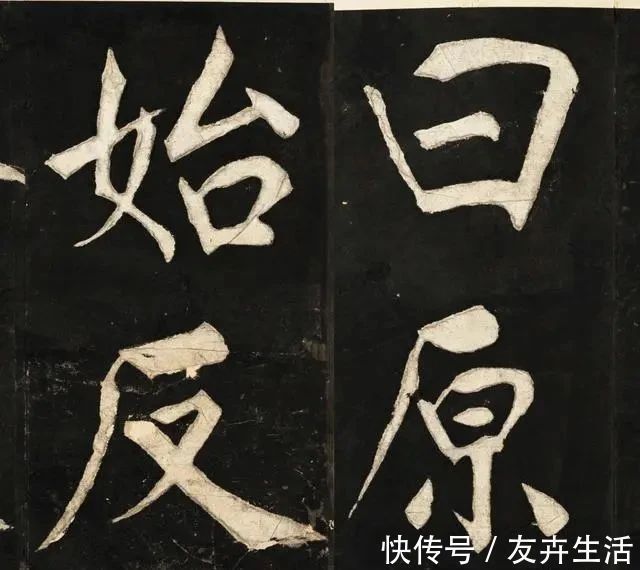 曰原
始反
快传号 / 友卉生活